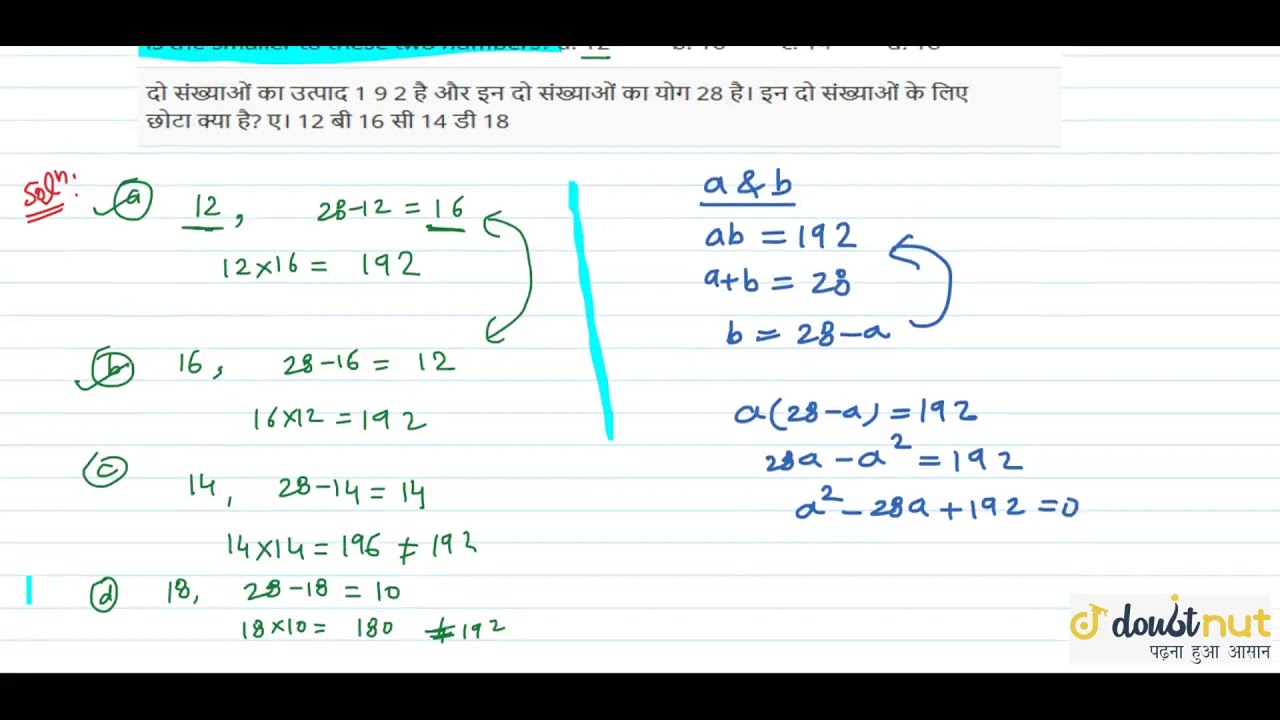 is the smaller to these two numbers? a. 12 b. 16 c. 14 d. 18
दो संख्याओं का उत्पाद 1 9 2 है और इन दो संख्याओं का योग 28 है। इन दो संख्याओं के लिए
छोटा क्या है? ए। 12 बी 16 सी 14 डी 18
Solⁿ:
a 12, 28-12 = 16
12×16 = 192
b 16, 28-16 = 12
16×12 = 192
c 14, 28-14 = 14
14×14 = 196 ≠ 192
d 18, 28-18 = 10
18×10 = 180 ≠ 192
a & b
ab = 192
a+b = 28
b = 28-a
a(28-a) = 192
28a - a² = 192
a² - 28a + 192 = 0
doubtnut
पढ़ना हुआ आसान